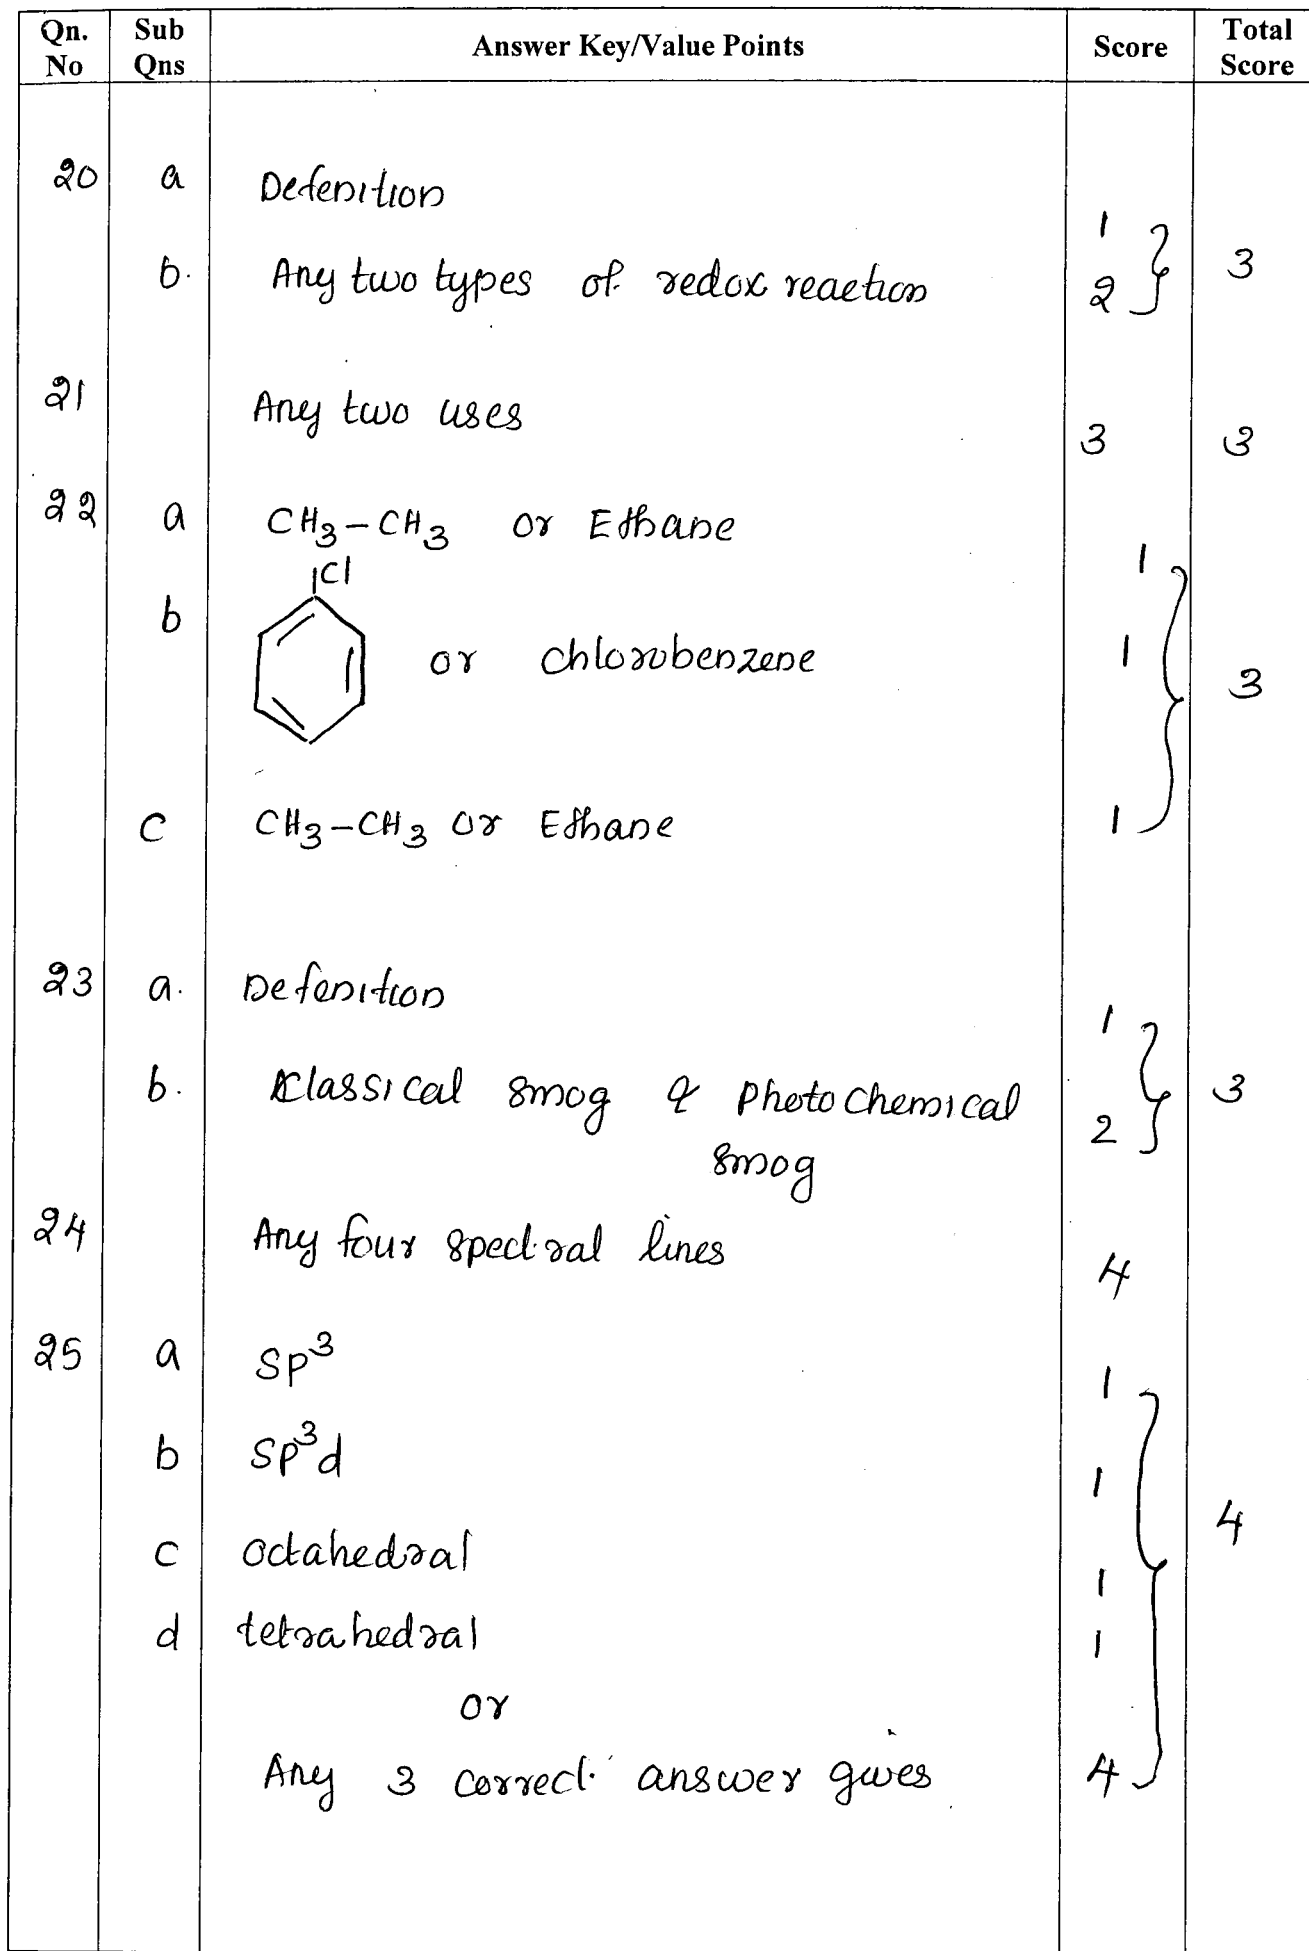 Qn. No Sub Qns Answer Key/Value Points Score Total Score
20 a Defenition 1
b. Any two types of redox reaction 2 3
21 Any two uses 3 3
22 a CH3-CH3 or Ethane 1
Cl
b or chlorobenzene 1 3
c CH3-CH3 Or Ethane 1
23 a. Defenition 1
b. Classical smog & Photochemical 2 3
smog
24 Any four spectral lines 4
25 a Sp³ 1
b Sp³d 1
c octahedral 1 4
d tetrahedral 1
or
Any 3 correct answer gives 4